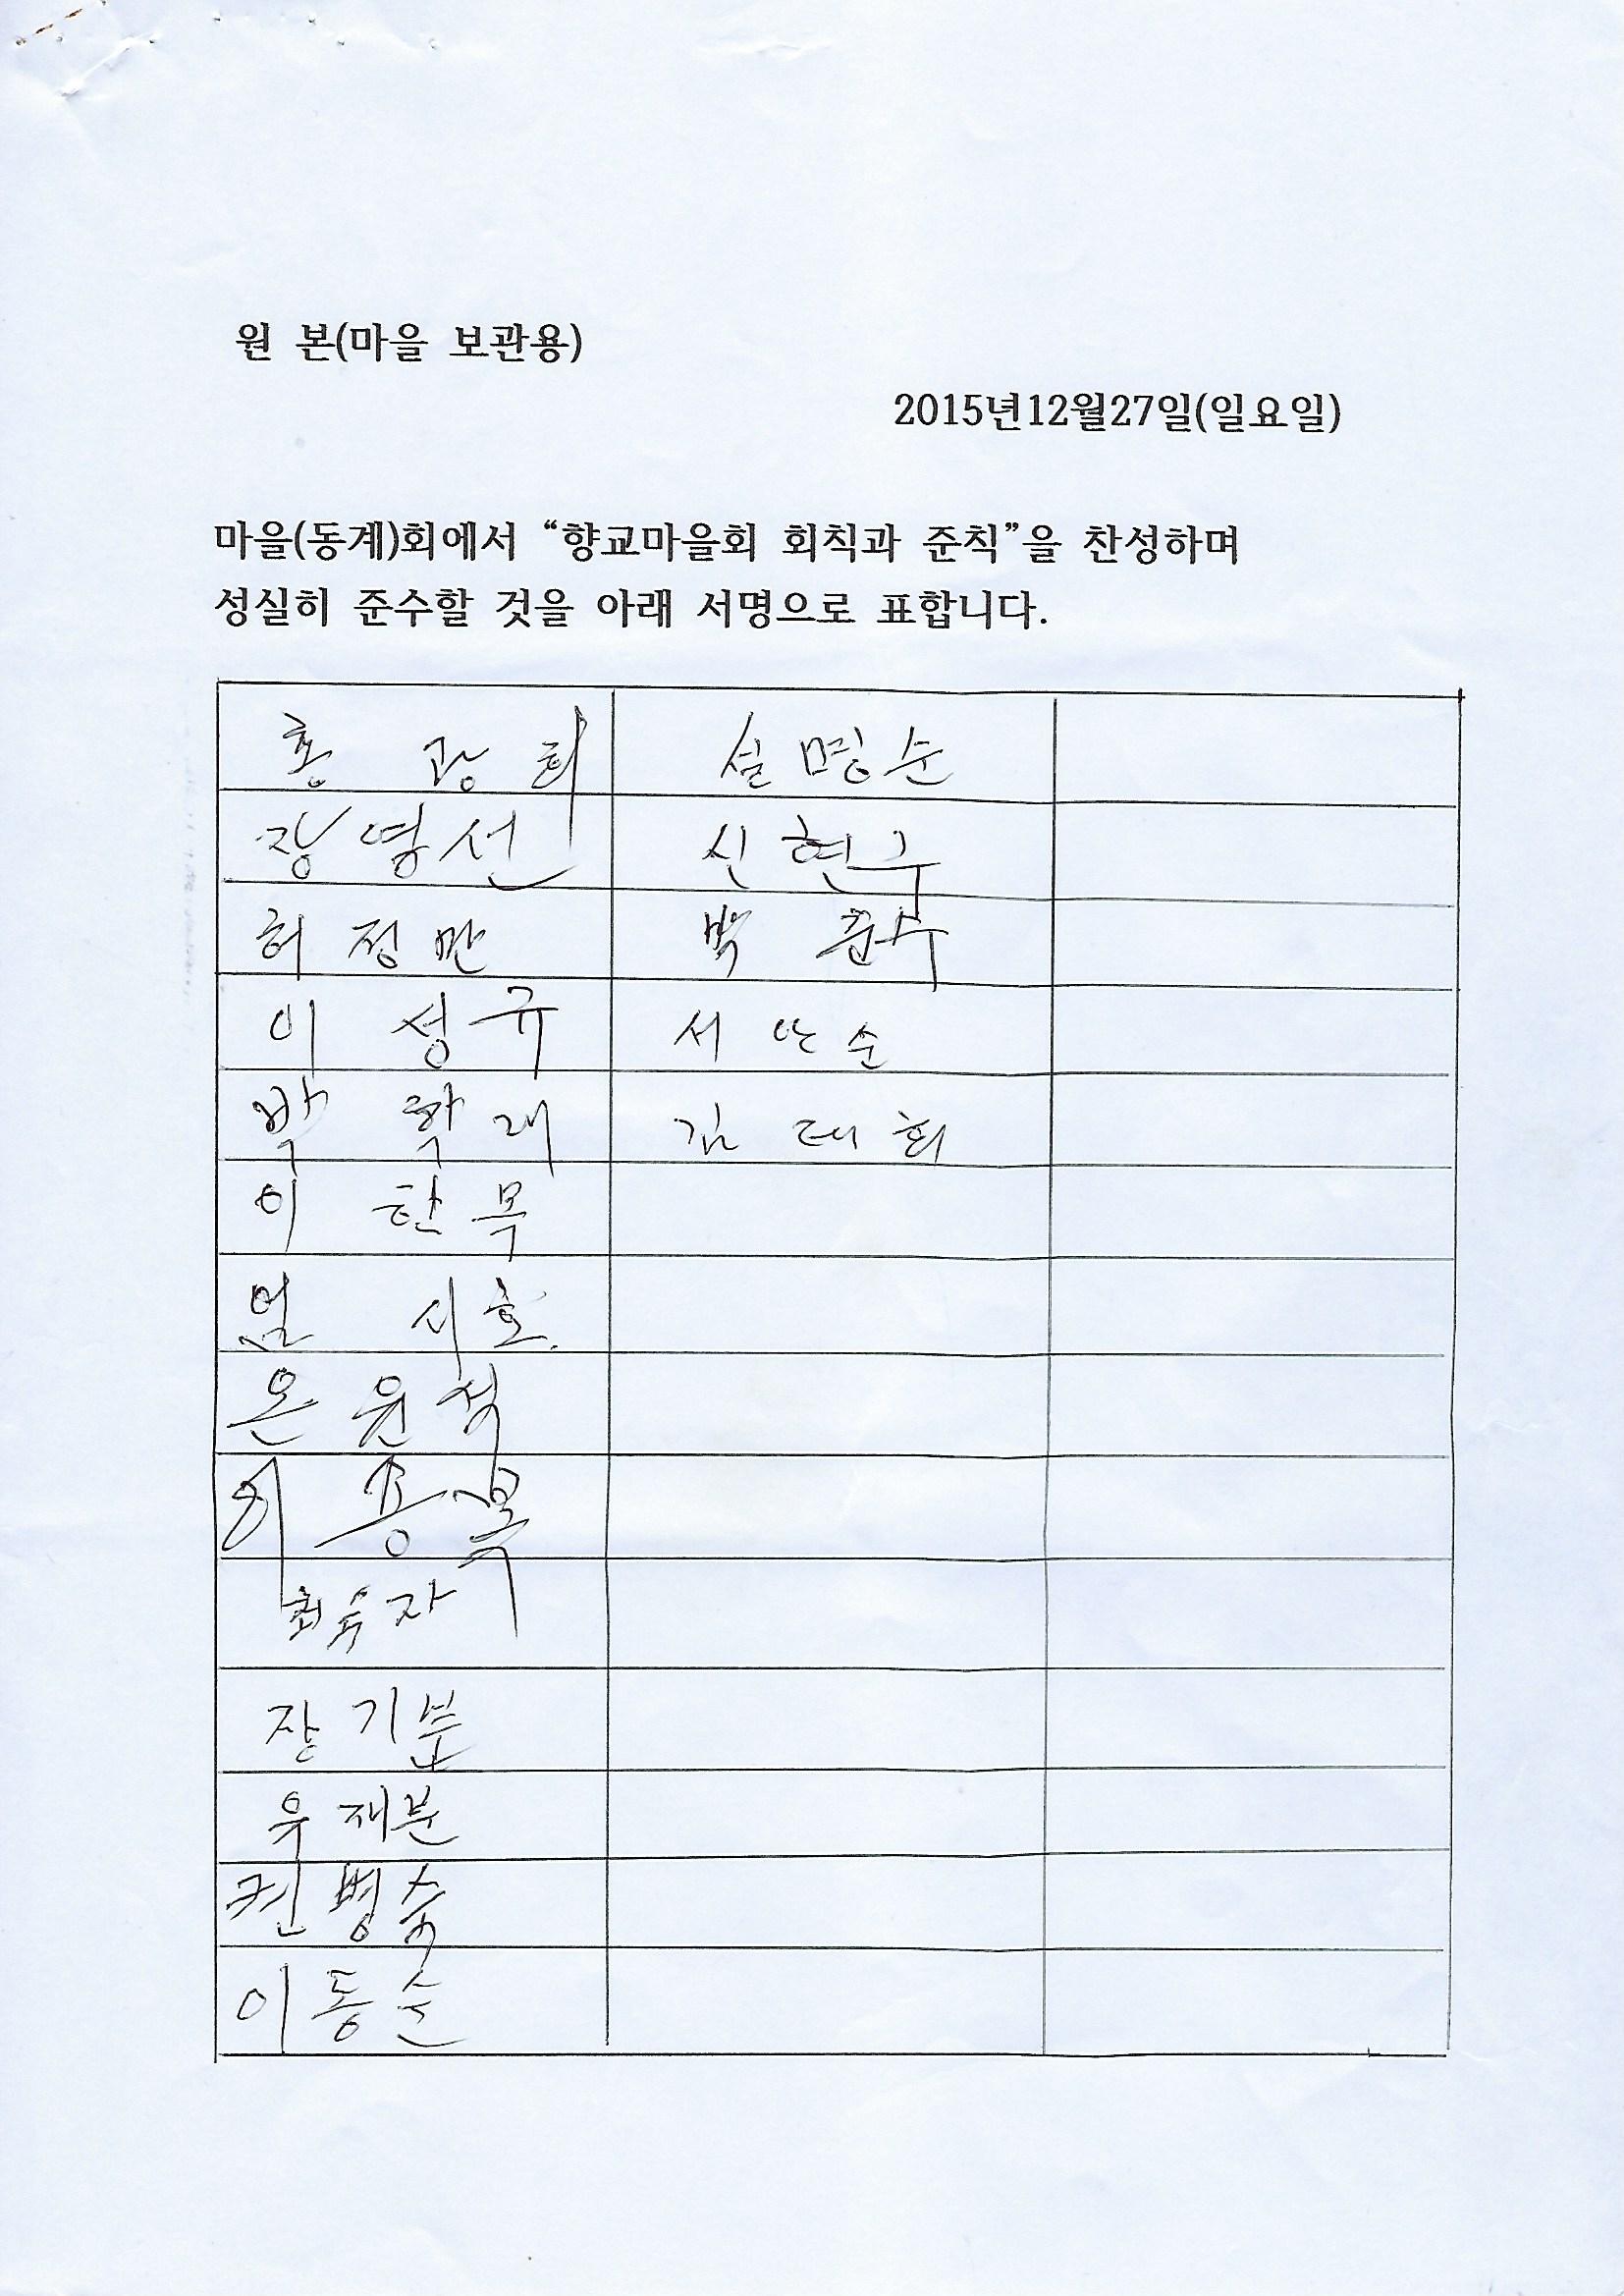 원 본(마을 보관용)
2015년12월27일(일요일)
마을(동계)회에서 “향교마을회 회칙과 준칙”을 찬성하며
성실히 준수할 것을 아래 서명으로 표합니다.
홍 광 희 심 명 순
장 영 선 신 현 구
허 정 만 박 준수
이 성 규 서 안 순
박 학 래 김 태 회
이 한 목
시호
온 윤 석
이 용 목
최유자
장 기분
우 재분
권 병숙
이 동순